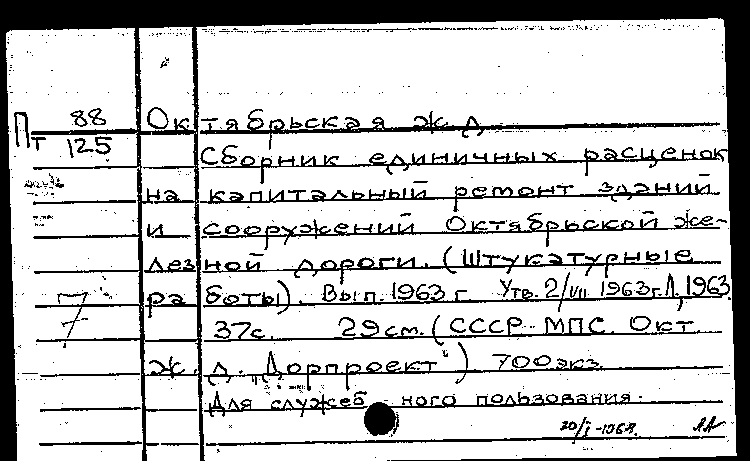 Пт 88/125 Октябрьская ж.д.
Сборник единичных расценок
на капитальный ремонт зданий
и сооружений Октябрьской же-
лезной дороги. (Штукатурные
работы). Вып. 1963 г. Утв. 2/VII 1963г. Л, 1963.
7
37с. 29см. (СССР МПС. Окт.
ж. д. „Дорпроект“) 700экз.
Для служебного пользования.